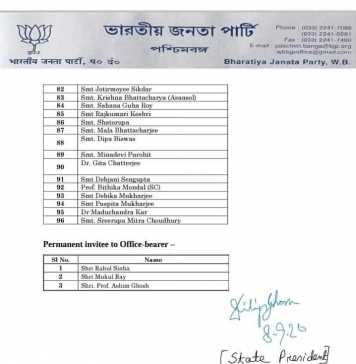 ভারতীয় জনতা পার্টি
পশ্চিমবঙ্গ
भारतीय जनता पार्टी, प० बं०
Phone : (033) 2241-7086
Fax : (033) 2241-7460
Bharatiya Janata Party, W.B.
82 Smt Jotirmoyee Sikdar
83 Smt. Krishna Bhattacharya (Asansol)
84 Smt. Sahana Guha Roy
85 Smt Rajkumari Keshri
86 Smt. Shatorupa
87 Smt. Mala Bhattacharjee
88 Smt. Dipa Biswas
89 Smt. Minadevi Purohit
90 Dr. Gita Chatterjee
91 Smt Debjani Sengupta
92 Prof. Bithika Mondal (SC)
93 Smt Debika Mukharjee
94 Smt Puspita Mukharjee
95 Dr Maduchandra Kar
96 Smt. Sreerupa Mitra Choudhury
Permanent invitee to Office-bearer –
Sl No. Name
1 Shri Rahul Sinha
2 Shri Mukul Ray
3 Shri. Prof. Ashim Ghosh
8-9.20
[State President]